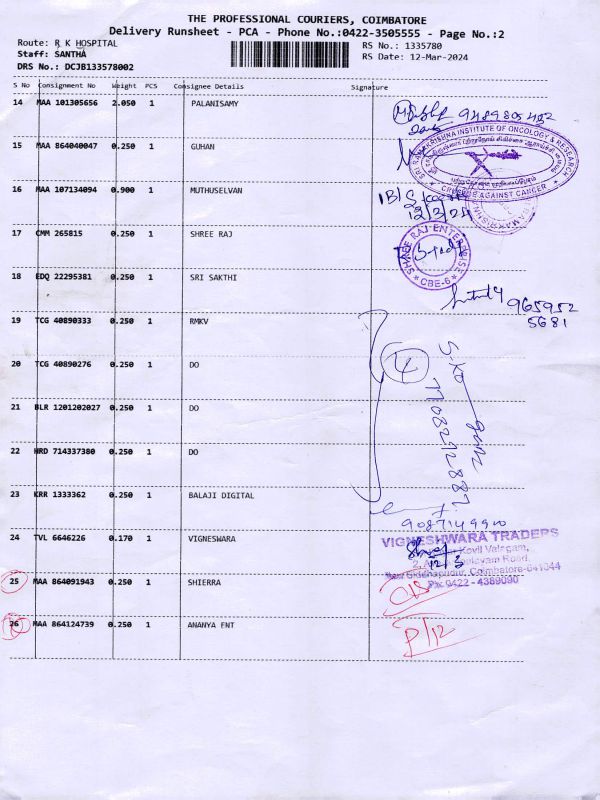 THE PROFESSIONAL COURIERS, COIMBATORE
Delivery Runsheet - PCA - Phone No.:0422-3505555 - Page No.:2
Route: R K HOSPITAL
Staff: SANTHA
DRS No.: DCJB133578002
RS No.: 1335780
RS Date: 12-Mar-2024
S No Consignment No Weight PCS Consignee Details Signature
14 MAA 101305656 2.050 1 PALANISAMY
9489805452
15 MAA 864040047 0.250 1 GUHAN
SRI RAMAKRISHNA INSTITUTE OF ONCOLOGY & RESEARCH
CRUSADE AGAINST CANCER
16 MAA 107134094 0.900 1 MUTHUSELVAN
12/3/24
17 CMM 265815 0.250 1 SHREE RAJ
SHREE RAJ ENTERPRISE
CBE-6
18 EDQ 22295381 0.250 1 SRI SAKTHI
965952
5681
19 TCG 40890333 0.250 1 RMKV
20 TCG 40890276 0.250 1 DO
4
7708292887
21 BLR 1201202027 0.250 1 DO
22 HRD 714337380 0.250 1 DO
23 KRR 1333362 0.250 1 BALAJI DIGITAL
9087149900
24 TVL 6646226 0.170 1 VIGNESWARA
VIGNESHWARA TRADERS
Kovil Veethi
New Siddhapudur, Coimbatore-641044
Ph: 0422 - 4389090
12/3
25 MAA 864091943 0.250 1 SHIERRA
26 MAA 864124739 0.250 1 ANANYA ENT
P/12